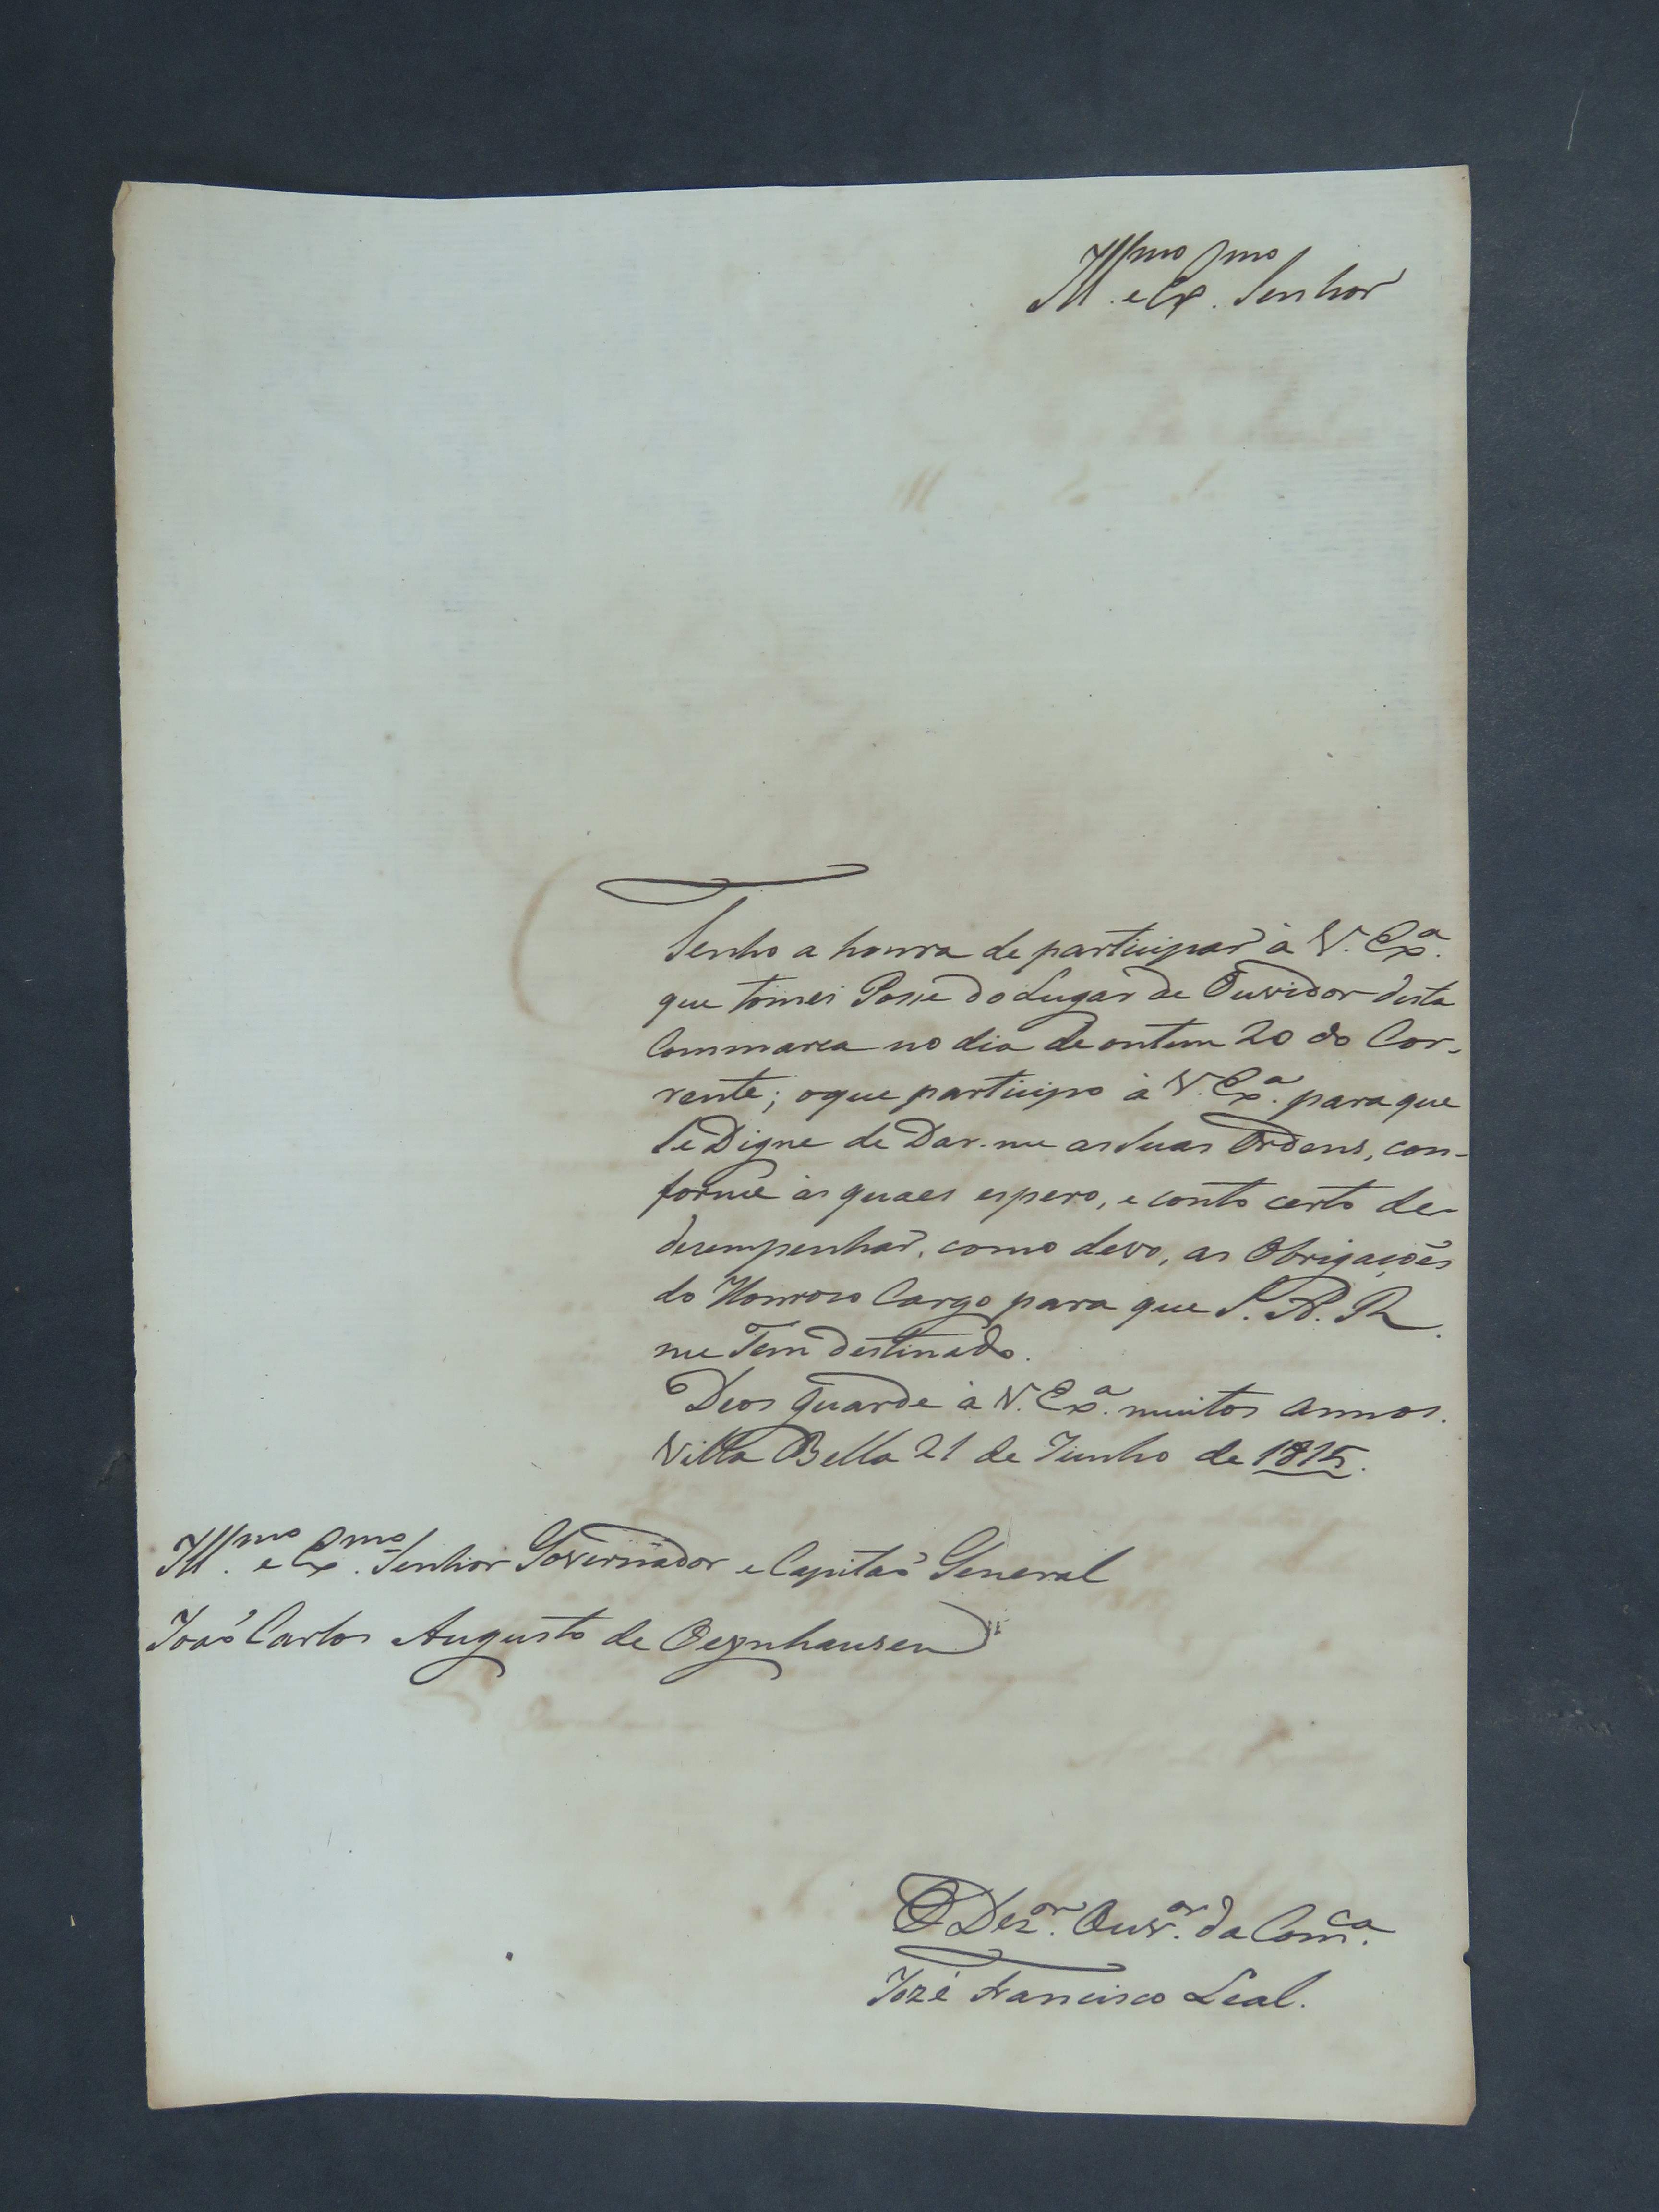 Ill.mo e Ex.mo Senhor
Tenho a honra de participar à V. Ex.a
que tomei Posse do Lugar de Ouvidor desta
Commarca no dia de ontem 20 do Cor-
rente; o que participo à V. Ex.a para que
Se Digne de Dar-me as Suas Ordens, con-
forme às quaes espero, e conto certo de
dezempenhar, como devo, as Obrigaçoẽs
do Honrozo Cargo para que S. A. R.
me Tem destinado.
Deos guarde à V. Ex.a muitos annos.
Villa Bella 21 de Junho de 1815.
Ill.mo e Ex.mo Senhor Governador e Capitaõ General
Joaõ Carlos Augusto de Oeynhausen
O Dez.or Ouv.or da Com.ca
Jozé Francisco Leal.